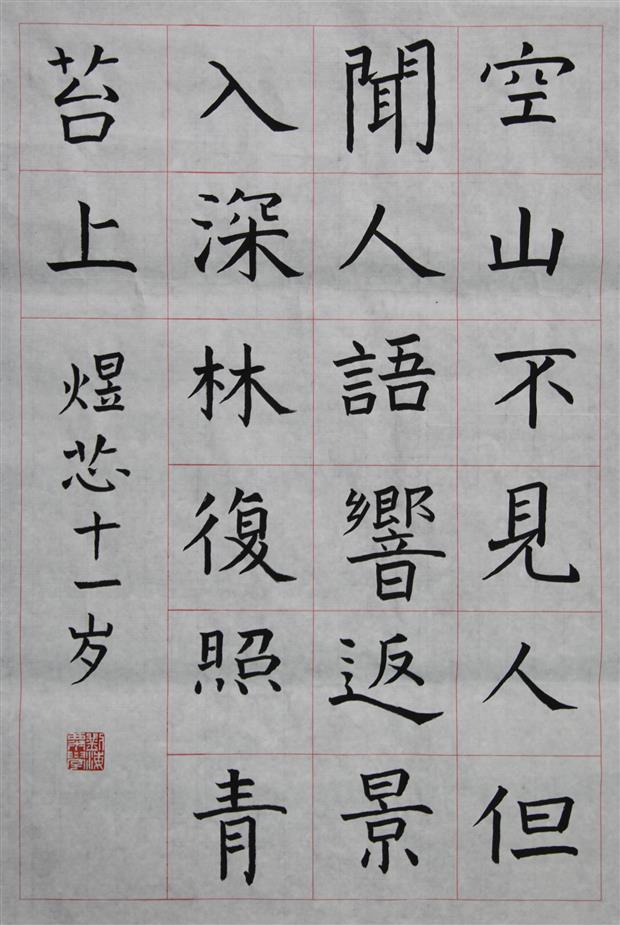 空山不見人但
聞人語響返景
入深林復照青
苔上
煜芯十一岁